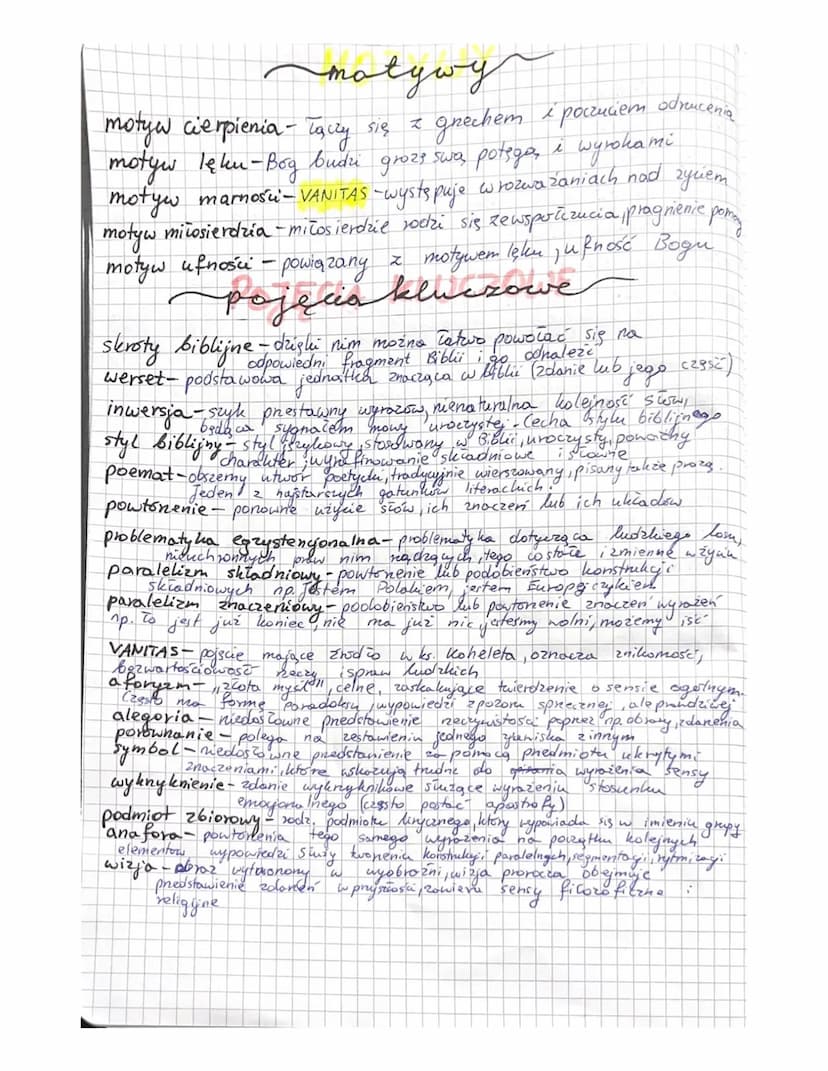 MOTYWY
motywy
motyw cierpienia - łączy się z grzechem i poczuciem odrzucenia
motyw lęku - Bóg budzi grozę swą potęgą i wyrokami
motyw marności - VANITAS - występuje w rozważaniach nad życiem
motyw miłosierdzia - miłosierdzie rodzi się ze współczucia, pragnienie pomocy
motyw ufności - powiązany z motywem lęku, ufność Bogu
POJĘCIA KLUCZOWE
pojęcia kluczowe
skróty biblijne - dzięki nim można łatwo powołać się na
odpowiedni fragment Biblii i go odnaleźć
werset - podstawowa jednostka znacząca w Biblii (zdanie lub jego część)
inwersja - szyk przestawny wyrazów, nienaturalna kolejność słów,
będąca sygnałem mowy uroczystej. Cecha stylu biblijnego
styl biblijny - styl językowy, stosowany w Biblii, uroczysty, poważny
charakter, wyrafinowanie składniowe i słowne
poemat - obszerny utwór poetycki, tradycyjnie wierszowany, pisany także prozą.
Jeden z najstarszych gatunków literackich.
powtórzenie - ponowne użycie słów, ich znaczeń lub ich układów
problematyka egzystencjonalna - problematyka dotycząca ludzkiego losu,
nieuchronnych praw nim rządzących, tego co stałe i zmienne w życiu
paralelizm składniowy - powtórzenie lub podobieństwo konstrukcji
składniowych np. Jestem Polakiem, jestem Europejczykiem
paralelizm znaczeniowy - podobieństwo lub powtórzenie znaczeń wyrażeń
np. To jest już koniec, nie ma już nic, jesteśmy wolni, możemy iść
VANITAS - pojęcie mające źródło w ks. Koheleta, oznacza znikomość,
bezwartościowość rzeczy i spraw ludzkich
aforyzm - „złota myśl", celne, zaskakujące twierdzenie o sensie ogólnym.
Często ma formę paradoksu, wypowiedzi z pozoru sprzecznej, ale prawdziwej
alegoria - niedosłowne przedstawienie rzeczywistości poprzez np. obrazy, zdarzenia
porównanie - polega na zestawieniu jednego zjawiska z innym
symbol - niedosłowne przedstawienie za pomocą przedmiotu ukrytymi
znaczeniami, które wskazują trudne do wyrażenia sensy
wykrzyknienie - zdanie wykrzyknikowe służące wyrażeniu stosunku
emocjonalnego (często postać apostrofy)
podmiot zbiorowy - rodz. podmiotu lirycznego, który wypowiada się w imieniu grupy
anafora - powtórzenia tego samego wyrażenia na początku kolejnych
elementów wypowiedzi służy tworzeniu konstrukcji paralelnych, segmentacji, rytmizacji
wizja - obraz wytworzony w wyobraźni, wizja prorocza obejmuje
przedstawienie zdarzeń w przyszłości, zawiera sensy filozoficzne i
religijne